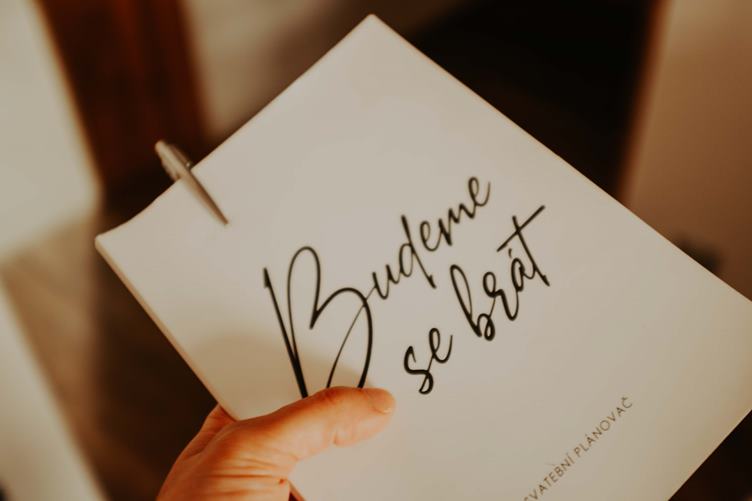 Budeme
se brát
SVATEBNÍ PLÁNOVAČ